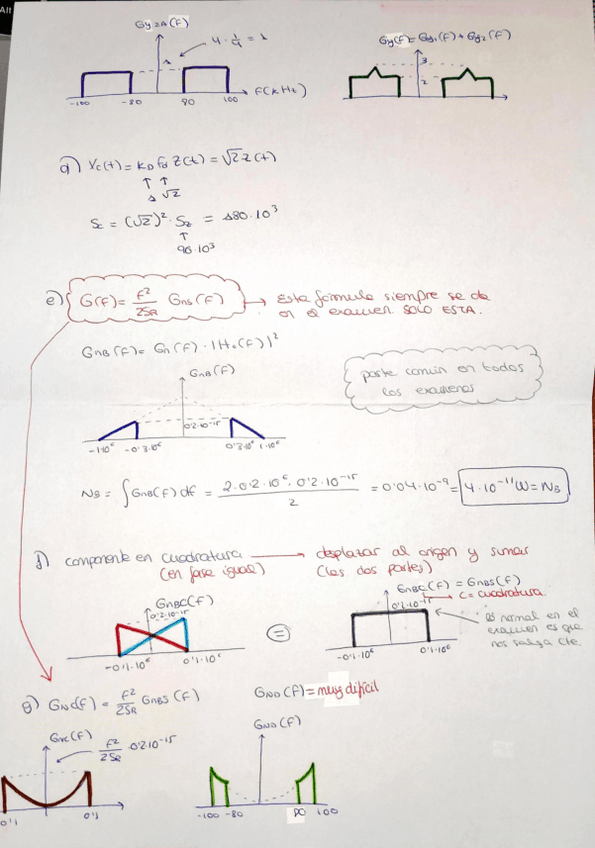 Alt
Gy2A(F)
4 · 1/4 = 1
1
-100 -80 80 100 F(kHz)
Gy(F) = Gy1(F) + Gy2(F)
3
2
d) Yc(t) = KD fd Z(t) = √2 z(t)
↑ ↑
1 √2
Sc = (√2)² · Sz = 180·10³
↑
90·10³
e) G(F) = F²/2SR GNS(F) → Esta fórmula siempre se da
en el examen. SOLO ESTA.
GNB(F) = Gn(F) · |HR(F)|²
parte común en todos
los exámenes
GNB(F)
0'2·10⁻¹⁵
-1·10⁶ -0'3·10⁶ 0'3·10⁶ 1·10⁶
NB = ∫ GNB(F) dF = 2·0'2·10⁶ · 0'2·10⁻¹⁵ / 2 = 0'04·10⁻⁹ = 4·10⁻¹¹ W = NB
f) componente en cuadratura → desplazar al origen y sumar
(en fase igual) (las dos partes)
GNBC(F)
0'2·10⁻¹⁵
-0'1·10⁶ 0'1·10⁶
=
GNBC(F) = GNBS(F)
C = cuadratura.
0'2·10⁻¹⁵
-0'1·10⁶ 0'1·10⁶
lo normal en el
examen es que
nos salga cte.
g) GNC(F) = F²/2SR GNBS(F)
GND(F) = muy difícil
GNC(F)
F²/2SR · 0'2·10⁻¹⁵
0'1 0'1
GND(F)
-100 -80 80 100